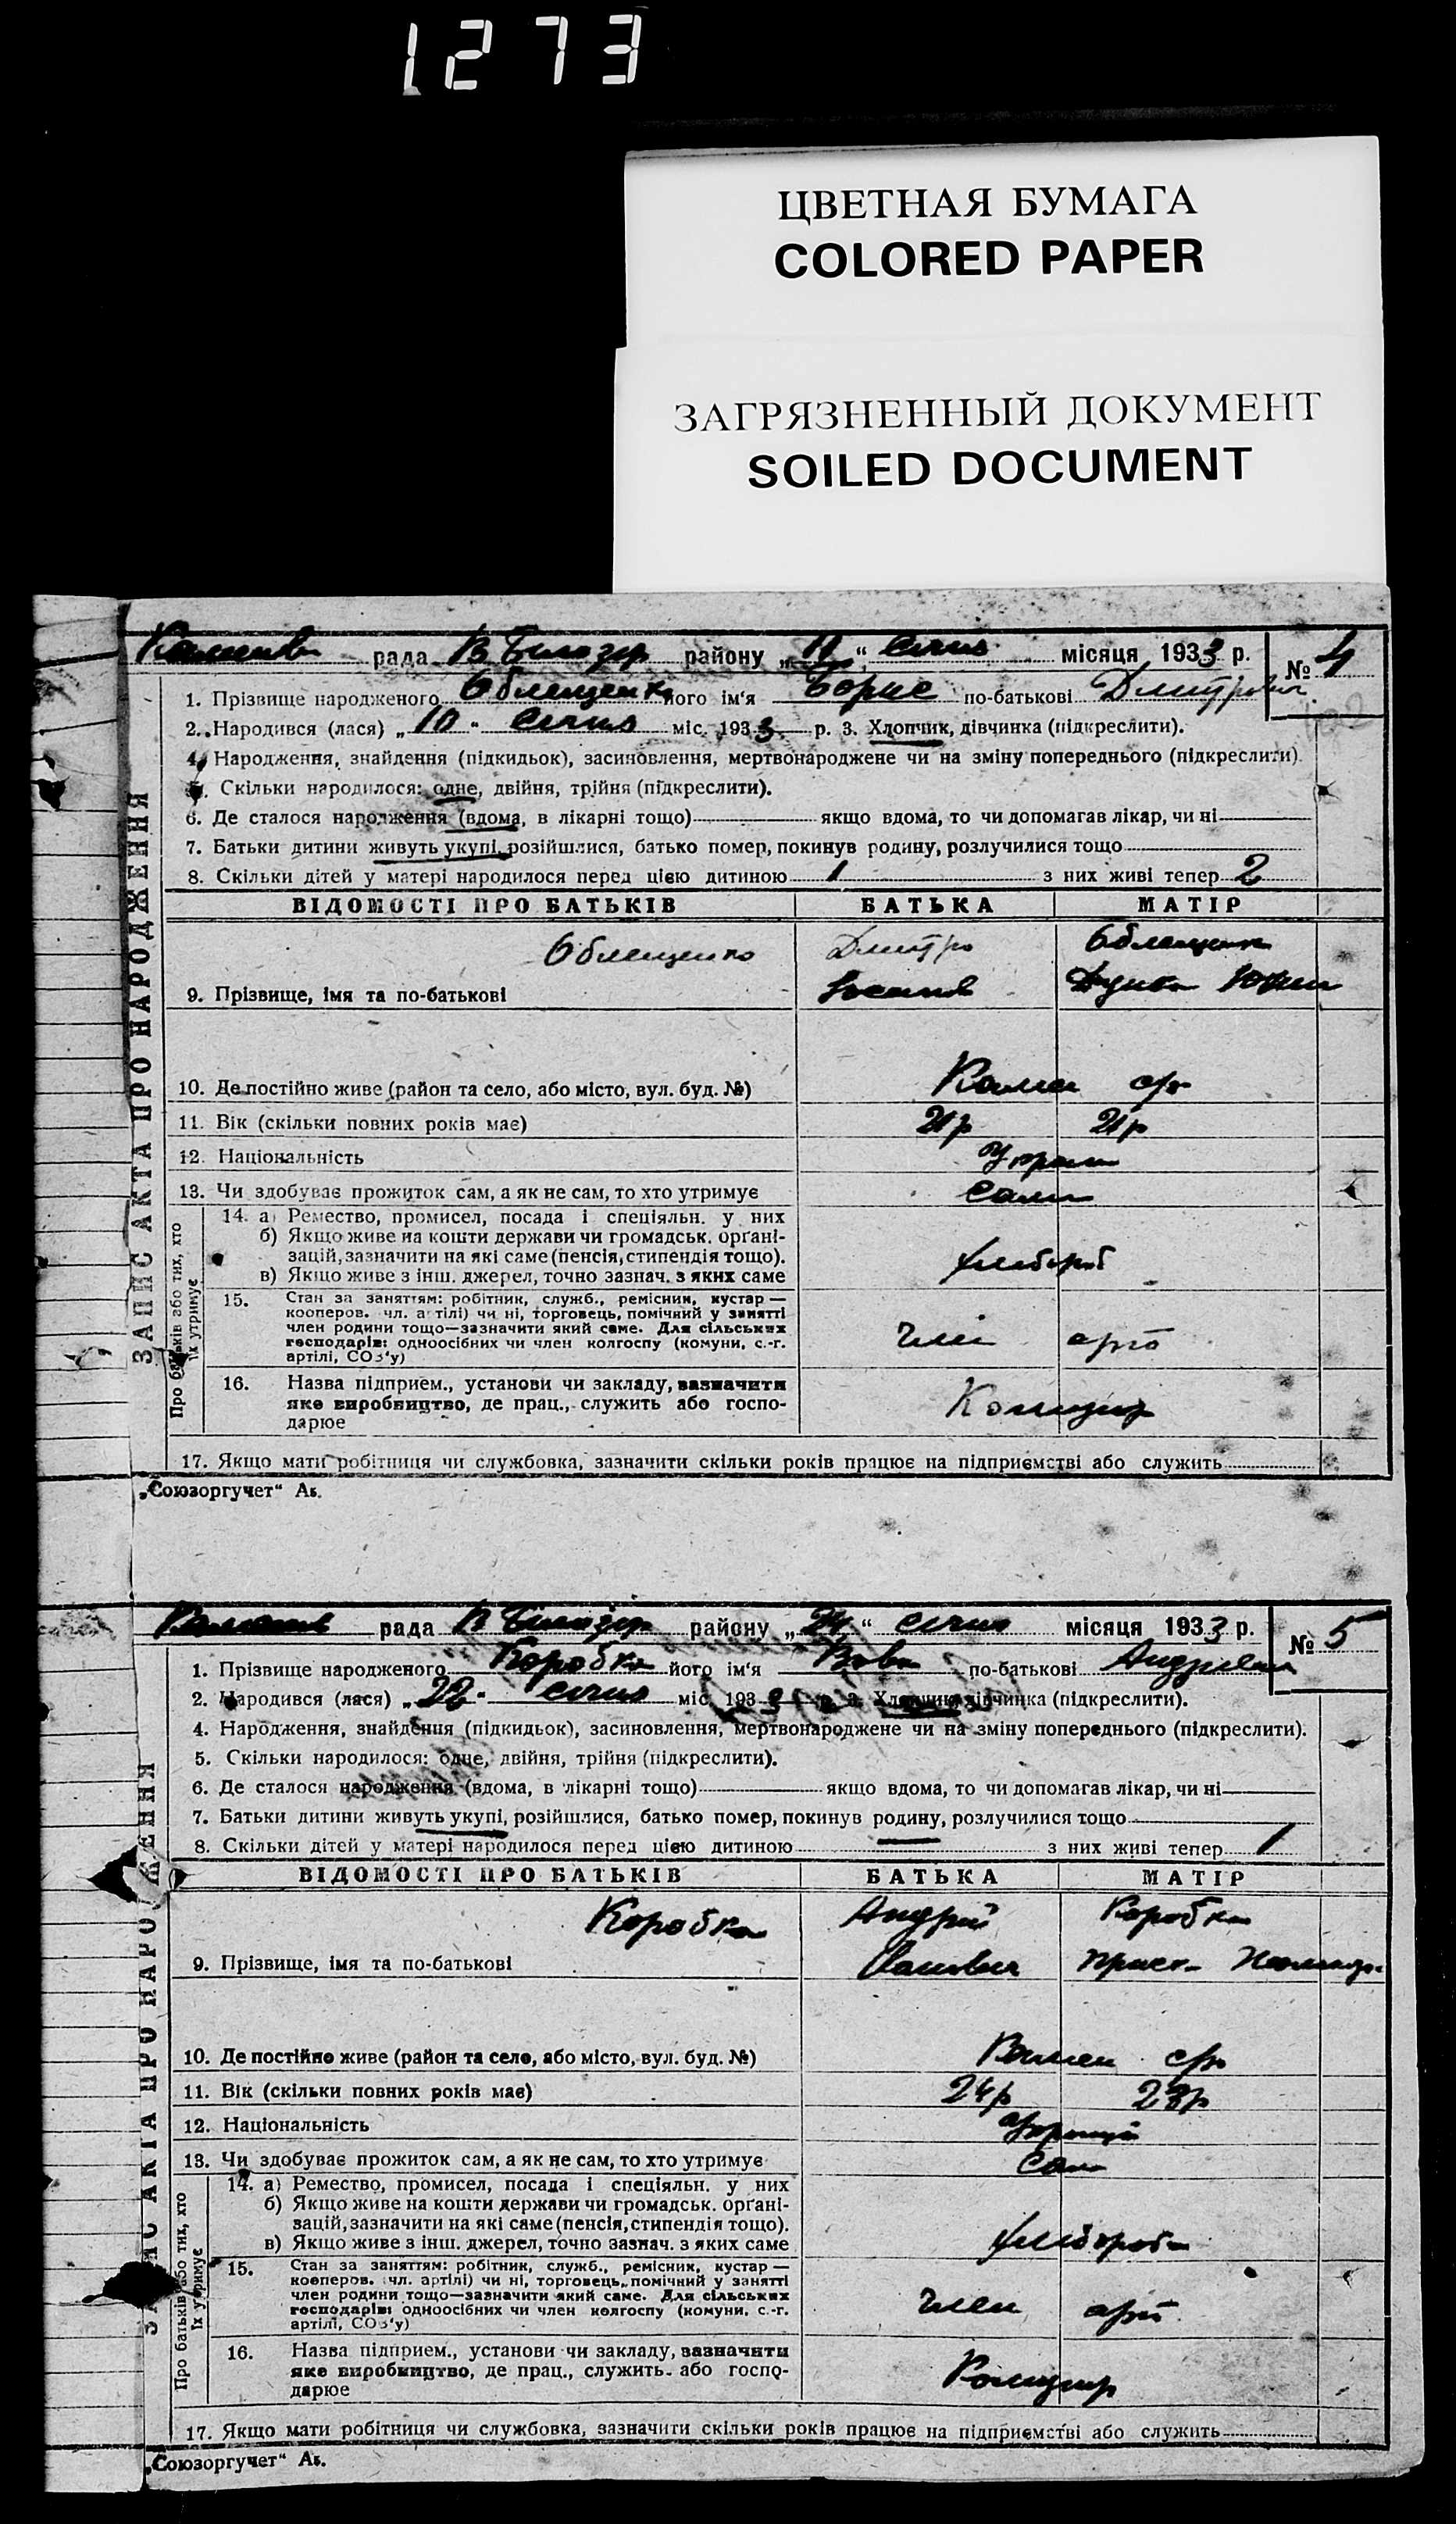 1273
ЦВЕТНАЯ БУМАГА
COLORED PAPER
ЗАГРЯЗНЕННЫЙ ДОКУМЕНТ
SOILED DOCUMENT
рада В Білозер району „11“ січня місяця 1933 р. № 4
1. Прізвище народженого Облещенко його ім'я Борис по-батькові Дмитрович
2. Народився (лася) „10" січня міс. 1933 р. 3. Хлопчик, дівчинка (підкреслити).
4. Народження, знайдення (підкидьок), засиновлення, мертвонароджене чи на зміну попереднього (підкреслити).
5. Скільки народилося: одне, двійня, трійня (підкреслити).
6. Де сталося народження (вдома, в лікарні тощо) якщо вдома, то чи допомагав лікар, чи ні
7. Батьки дитини живуть укупі, розійшлися, батько помер, покинув родину, розлучилися тощо
8. Скільки дітей у матері народилося перед цією дитиною 1 з них живі тепер 2
ВІДОМОСТІ ПРО БАТЬКІВ БАТЬКА МАТІР
Облещенко Дмитро Облещенко
9. Прізвище, імя та по-батькові
10. Де постійно живе (район та село, або місто, вул. буд. №) Камен с/р
11. Вік (скільки повних років має) 21р 21р
12. Національність Україн
13. Чи здобуває прожиток сам, а як не сам, то хто утримує сами
14. а) Ремество, промисел, посада і спеціяльн. у них
б) Якщо живе на кошти держави чи громадськ. органі-
зацій, зазначити на які саме (пенсія, стипендія тощо).
в) Якщо живе з інш. джерел, точно зазнач. з яких саме
хлібороб
15. Стан за заняттям: робітник, служб., ремісник, кустар —
кооперов. чл. артілі) чи ні, торговець, помічний у занятті
член родини тощо—зазначити який саме. Для сільських
господарів: одноосібних чи член колгоспу (комуни, с.-г.
артілі, СОЗ'у)
член арт
16. Назва підприєм., установи чи закладу, зазначити
яке виробництво, де прац., служить або госпо-
дарює
17. Якщо мати робітниця чи службовка, зазначити скільки років працює на підприємстві або служить
Про батьків або тих, хто
їх утримує
ЗАПИС АКТА ПРО НАРОДЖЕННЯ
„Союзоргучет“ Ав.
рада В Білозер району „24“ січня місяця 1933 р. № 5
1. Прізвище народженого Коробка його ім'я Вова по-батькові Андрієвич
2. Народився (лася) „22" січня міс. 1933 р. 3. Хлопчик, дівчинка (підкреслити).
4. Народження, знайдення (підкидьок), засиновлення, мертвонароджене чи на зміну попереднього (підкреслити).
5. Скільки народилося: одне, двійня, трійня (підкреслити).
6. Де сталося народження (вдома, в лікарні тощо) якщо вдома, то чи допомагав лікар, чи ні
7. Батьки дитини живуть укупі, розійшлися, батько помер, покинув родину, розлучилися тощо
8. Скільки дітей у матері народилося перед цією дитиною — з них живі тепер 1
ВІДОМОСТІ ПРО БАТЬКІВ БАТЬКА МАТІР
Коробка Андрій Коробка
9. Прізвище, імя та по-батькові Іванович
10. Де постійно живе (район та село, або місто, вул. буд. №) Камен с/р
11. Вік (скільки повних років має) 24р 23р
12. Національність
13. Чи здобуває прожиток сам, а як не сам, то хто утримує сам
14. а) Ремество, промисел, посада і спеціяльн. у них
б) Якщо живе на кошти держави чи громадськ. органі-
зацій, зазначити на які саме (пенсія, стипендія тощо).
в) Якщо живе з інш. джерел, точно зазнач. з яких саме
хлібороб
15. Стан за заняттям: робітник, служб., ремісник, кустар —
кооперов. чл. артілі) чи ні, торговець, помічний у занятті
член родини тощо—зазначити який саме. Для сільських
господарів: одноосібних чи член колгоспу (комуни, с.-г.
артілі, СОЗ'у)
член арт
16. Назва підприєм., установи чи закладу, зазначити
яке виробництво, де прац., служить або госпо-
дарює
17. Якщо мати робітниця чи службовка, зазначити скільки років працює на підприємстві або служить
Про батьків або тих, хто
їх утримує
ЗАПИС АКТА ПРО НАРОДЖЕННЯ
„Союзоргучет“ Ав.